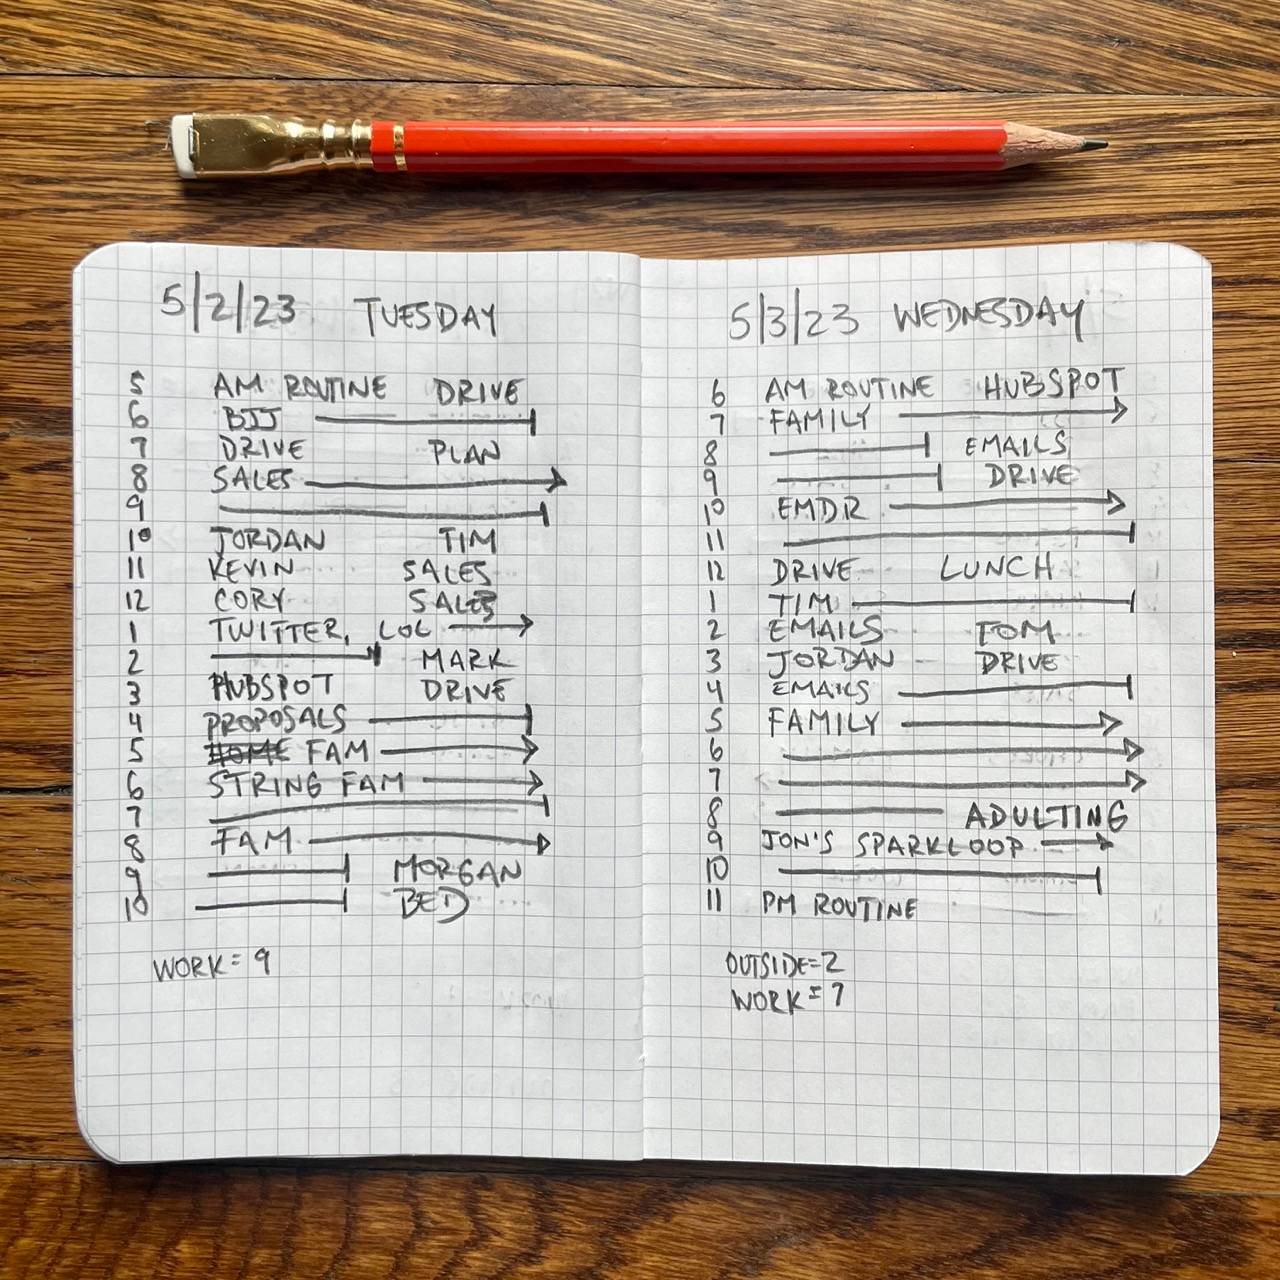 5/2/23 TUESDAY
5 AM ROUTINE DRIVE
6 BJJ
7 DRIVE PLAN
8 SALES
9
10 JORDAN TIM
11 KEVIN SALES
12 CORY SALES
1 TWITTER, LOL
2 MARK
3 HUBSPOT DRIVE
4 PROPOSALS
5 HOME FAM
6 STRING FAM
7
8 FAM
9 MORGAN
10 BED
WORK = 9
5/3/23 WEDNESDAY
6 AM ROUTINE HUBSPOT
7 FAMILY
8 EMAILS
9 DRIVE
10 EMDR
11
12 DRIVE LUNCH
1 TIM
2 EMAILS TOM
3 JORDAN DRIVE
4 EMAILS
5 FAMILY
6
7
8 ADULTING
9 JON'S SPARKLOOP
10
11 PM ROUTINE
OUTSIDE=2
WORK = 7